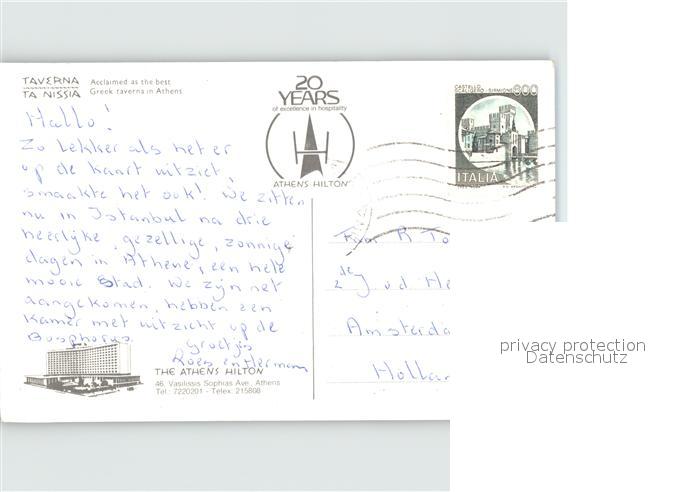 TAVERNA
TA NISSIA
Acclaimed as the best
Greek taverna in Athens
20
YEARS
of excellence in hospitality
ATHENS-HILTON
CASTELLO
SCALIGERO-SIRMIONE 800
ITALIA
Hallo!
Zo lekker als het er
op de kaart uitziet,
smaakte het ook! We zitten
nu in Istanbul na drie
heerlijke, gezellige, zonnige
dagen in Athene, een hele
mooie stad. We zijn net
aangekomen, hebben een
kamer met uitzicht op de
Bosphorus.
Groetjes
Fam R To
2de J. vd He
Amsterda
Hollan
THE ATHENS HILTON
46, Vasilissis Sophias Ave., Athens
Tel.: 7220201 - Telex: 215808
privacy protection
Datenschutz